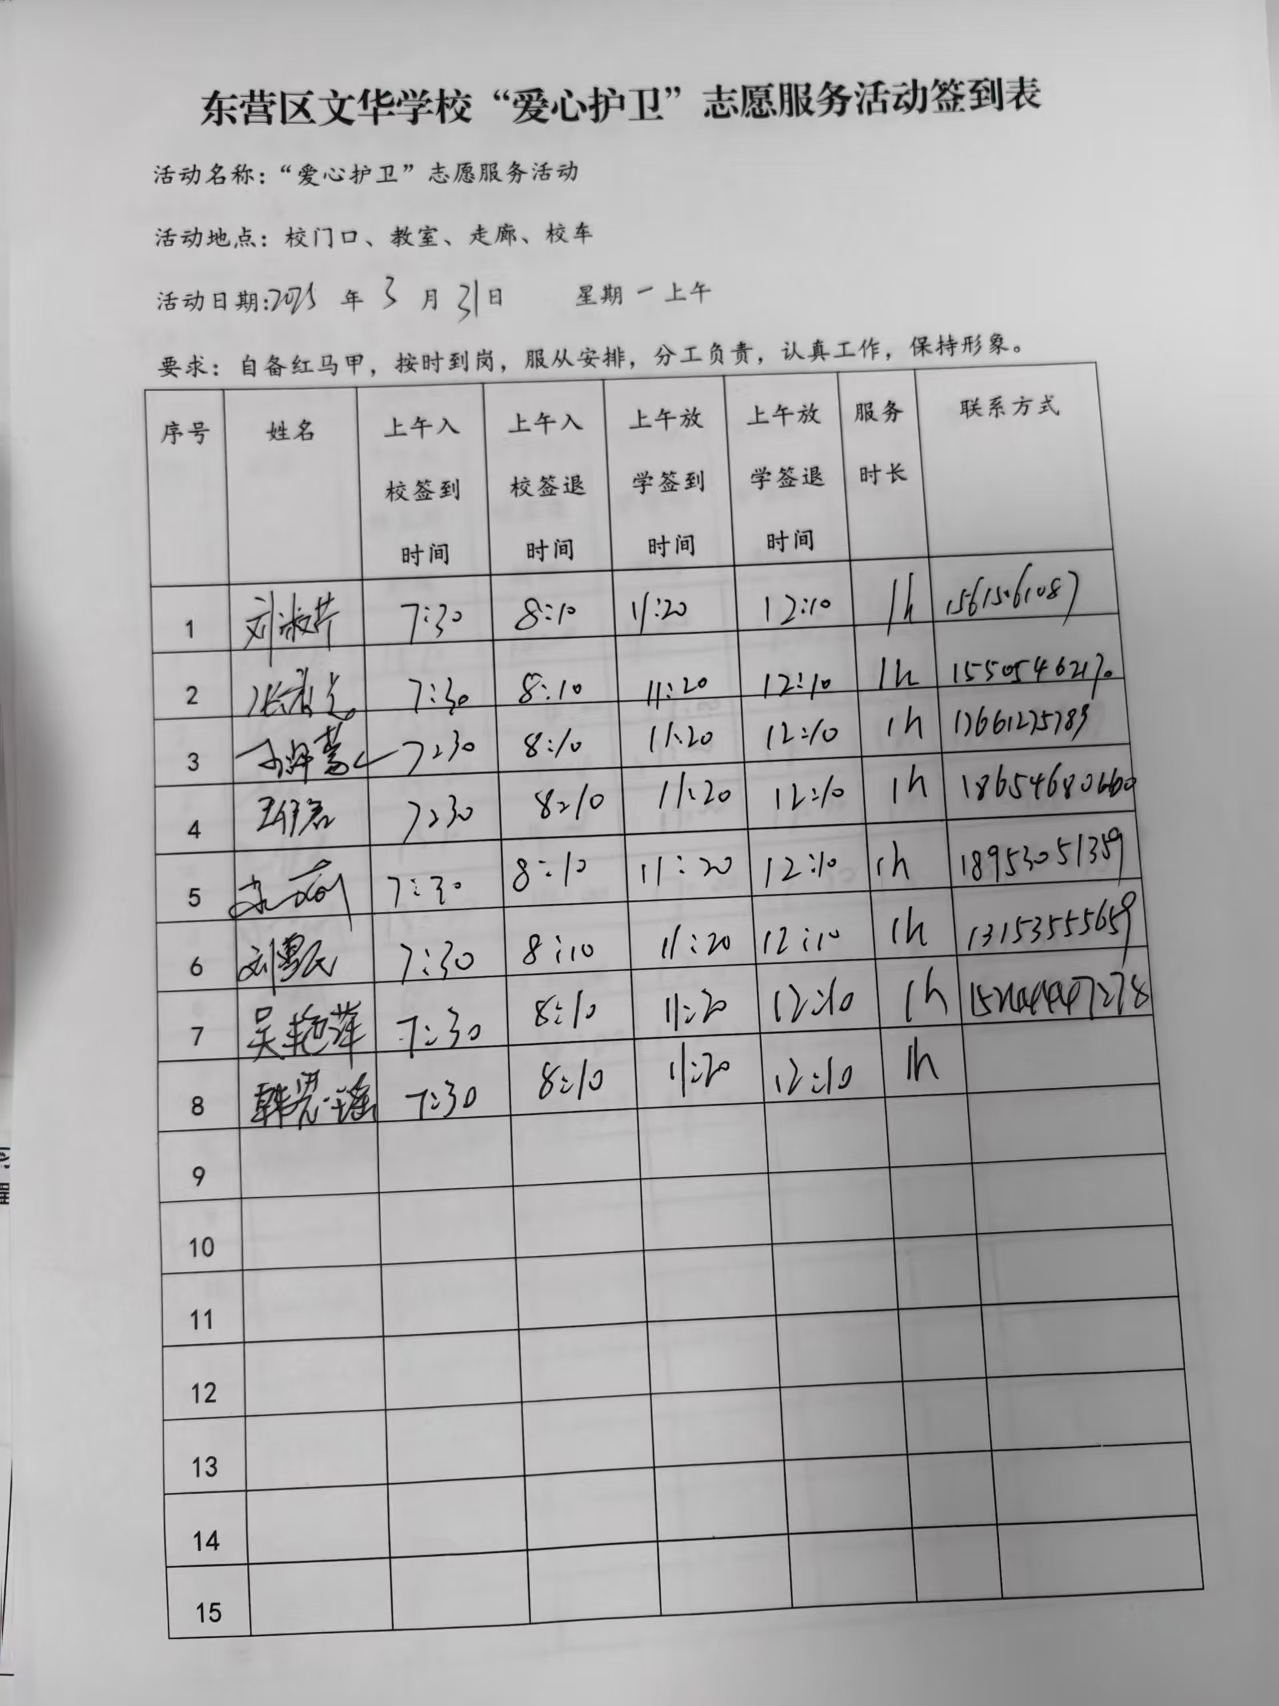 东营区文华学校“爱心护卫”志愿服务活动签到表
活动名称：“爱心护卫”志愿服务活动
活动地点：校门口、教室、走廊、校车
活动日期:2025 年 3 月 31日 星期一上午
要求：自备红马甲，按时到岗，服从安排，分工负责，认真工作，保持形象。
序号 姓名 上午入校签到时间 上午入校签退时间 上午放学签到时间 上午放学签退时间 服务时长 联系方式
1 刘淑芹 7:30 8:10 11:20 12:10 1h 15615061087
2 7:30 8:10 11:20 12:10 1h 15505462170
3 7:30 8:10 11:20 12:10 1h 17661275789
4 7:30 8:10 11:20 12:10 1h 18654680660
5 7:30 8:10 11:20 12:10 1h 18953051359
6 7:30 8:10 11:20 12:10 1h 13153555659
7 吴艳萍 7:30 8:10 11:20 12:10 1h
8 韩晃瑶 7:30 8:10 11:20 12:10 1h
9
10
11
12
13
14
15